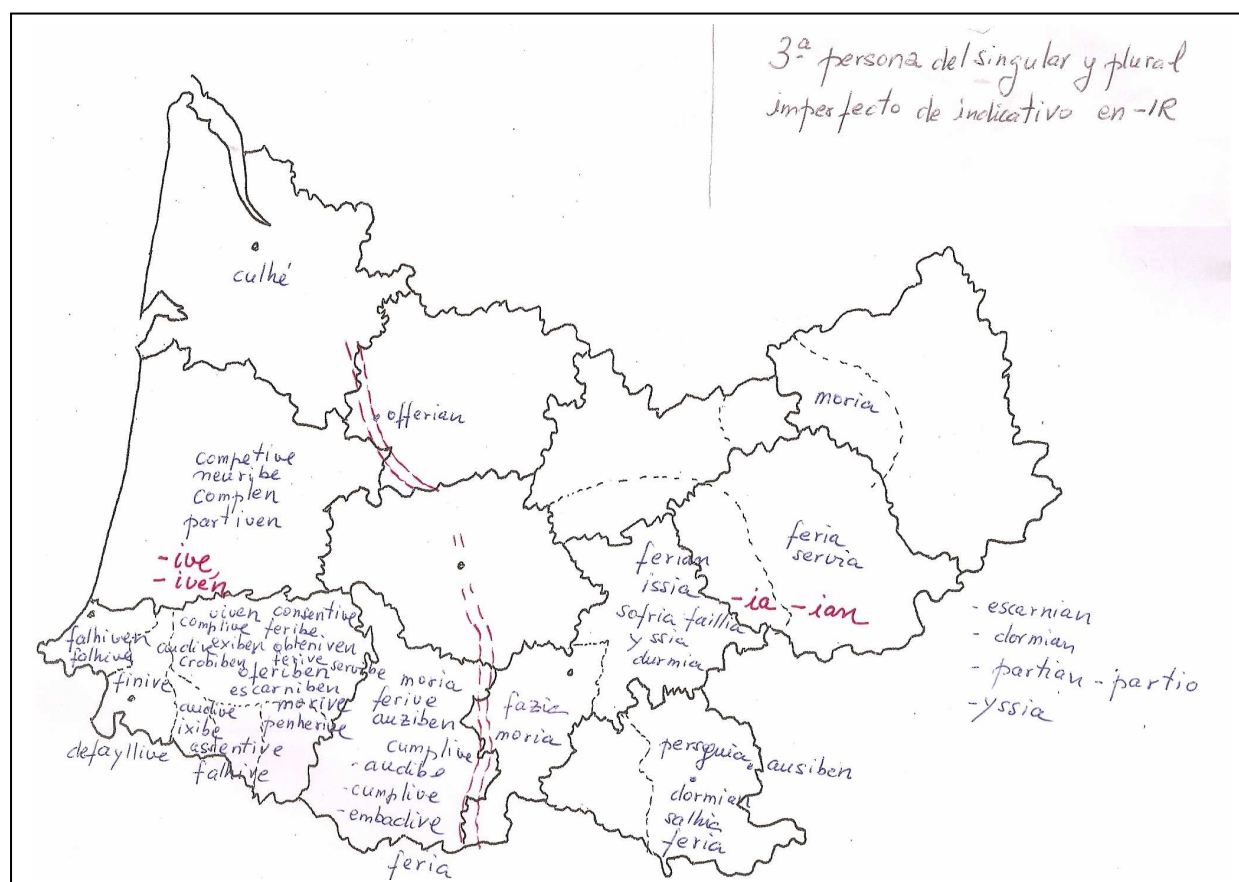 3ª persona del singular y plural
imperfecto de indicativo en -IR
culhé
offerian
moria
competive
neuribe
complen
partiven
-ive
-iven
feria
servia
ferian
issia
sofria faillia
yssia
durmia
-ia -ian
- escarnian
- dormian
- partian - partio
- yssia
falhiven
falhive
finive
defayllive
viven consentive
complive feribe
audive exiben obteniven
crobiben ferive servibe
oferiben
escarniben
morive
penherive
audive
ixibe
assentive
falhive
moria
ferive
auziben
cumplive
- audibe
- cumplive
- embadive
feria
fazia
moria
perseguia
ausiben
dormian
salhia
feria